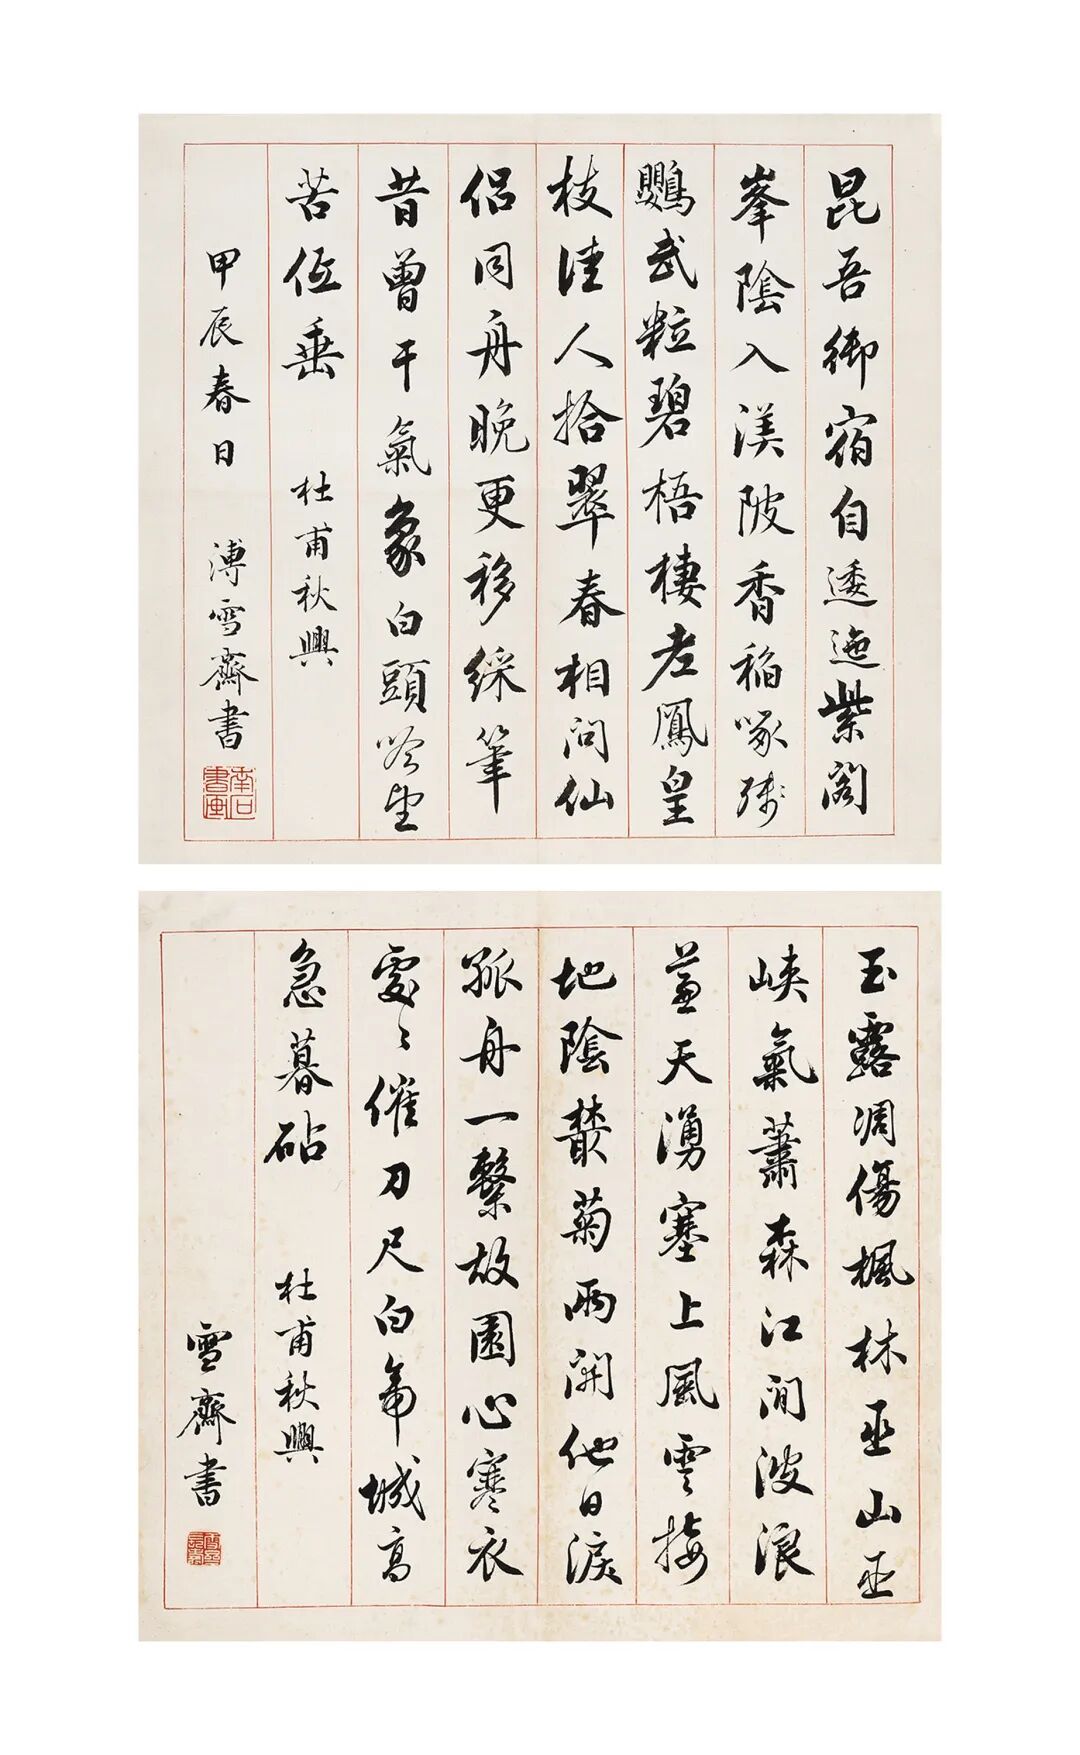 昆吾御宿自逶迤紫閣
峯陰入渼陂香稻啄殘
鸚武粒碧梧棲老鳳皇
枝佳人拾翠春相問仙
侶同舟晚更移綵筆
昔曾干氣象白頭吟望
苦低垂 杜甫秋興
甲辰春日 溥雪齋書
南石書畫
玉露凋傷楓林巫山巫
峽氣蕭森江間波浪
兼天湧塞上風雲接
地陰叢菊兩開他日淚
孤舟一繫故園心寒衣
處〻催刀尺白帝城高
急暮砧 杜甫秋興
雪齋書